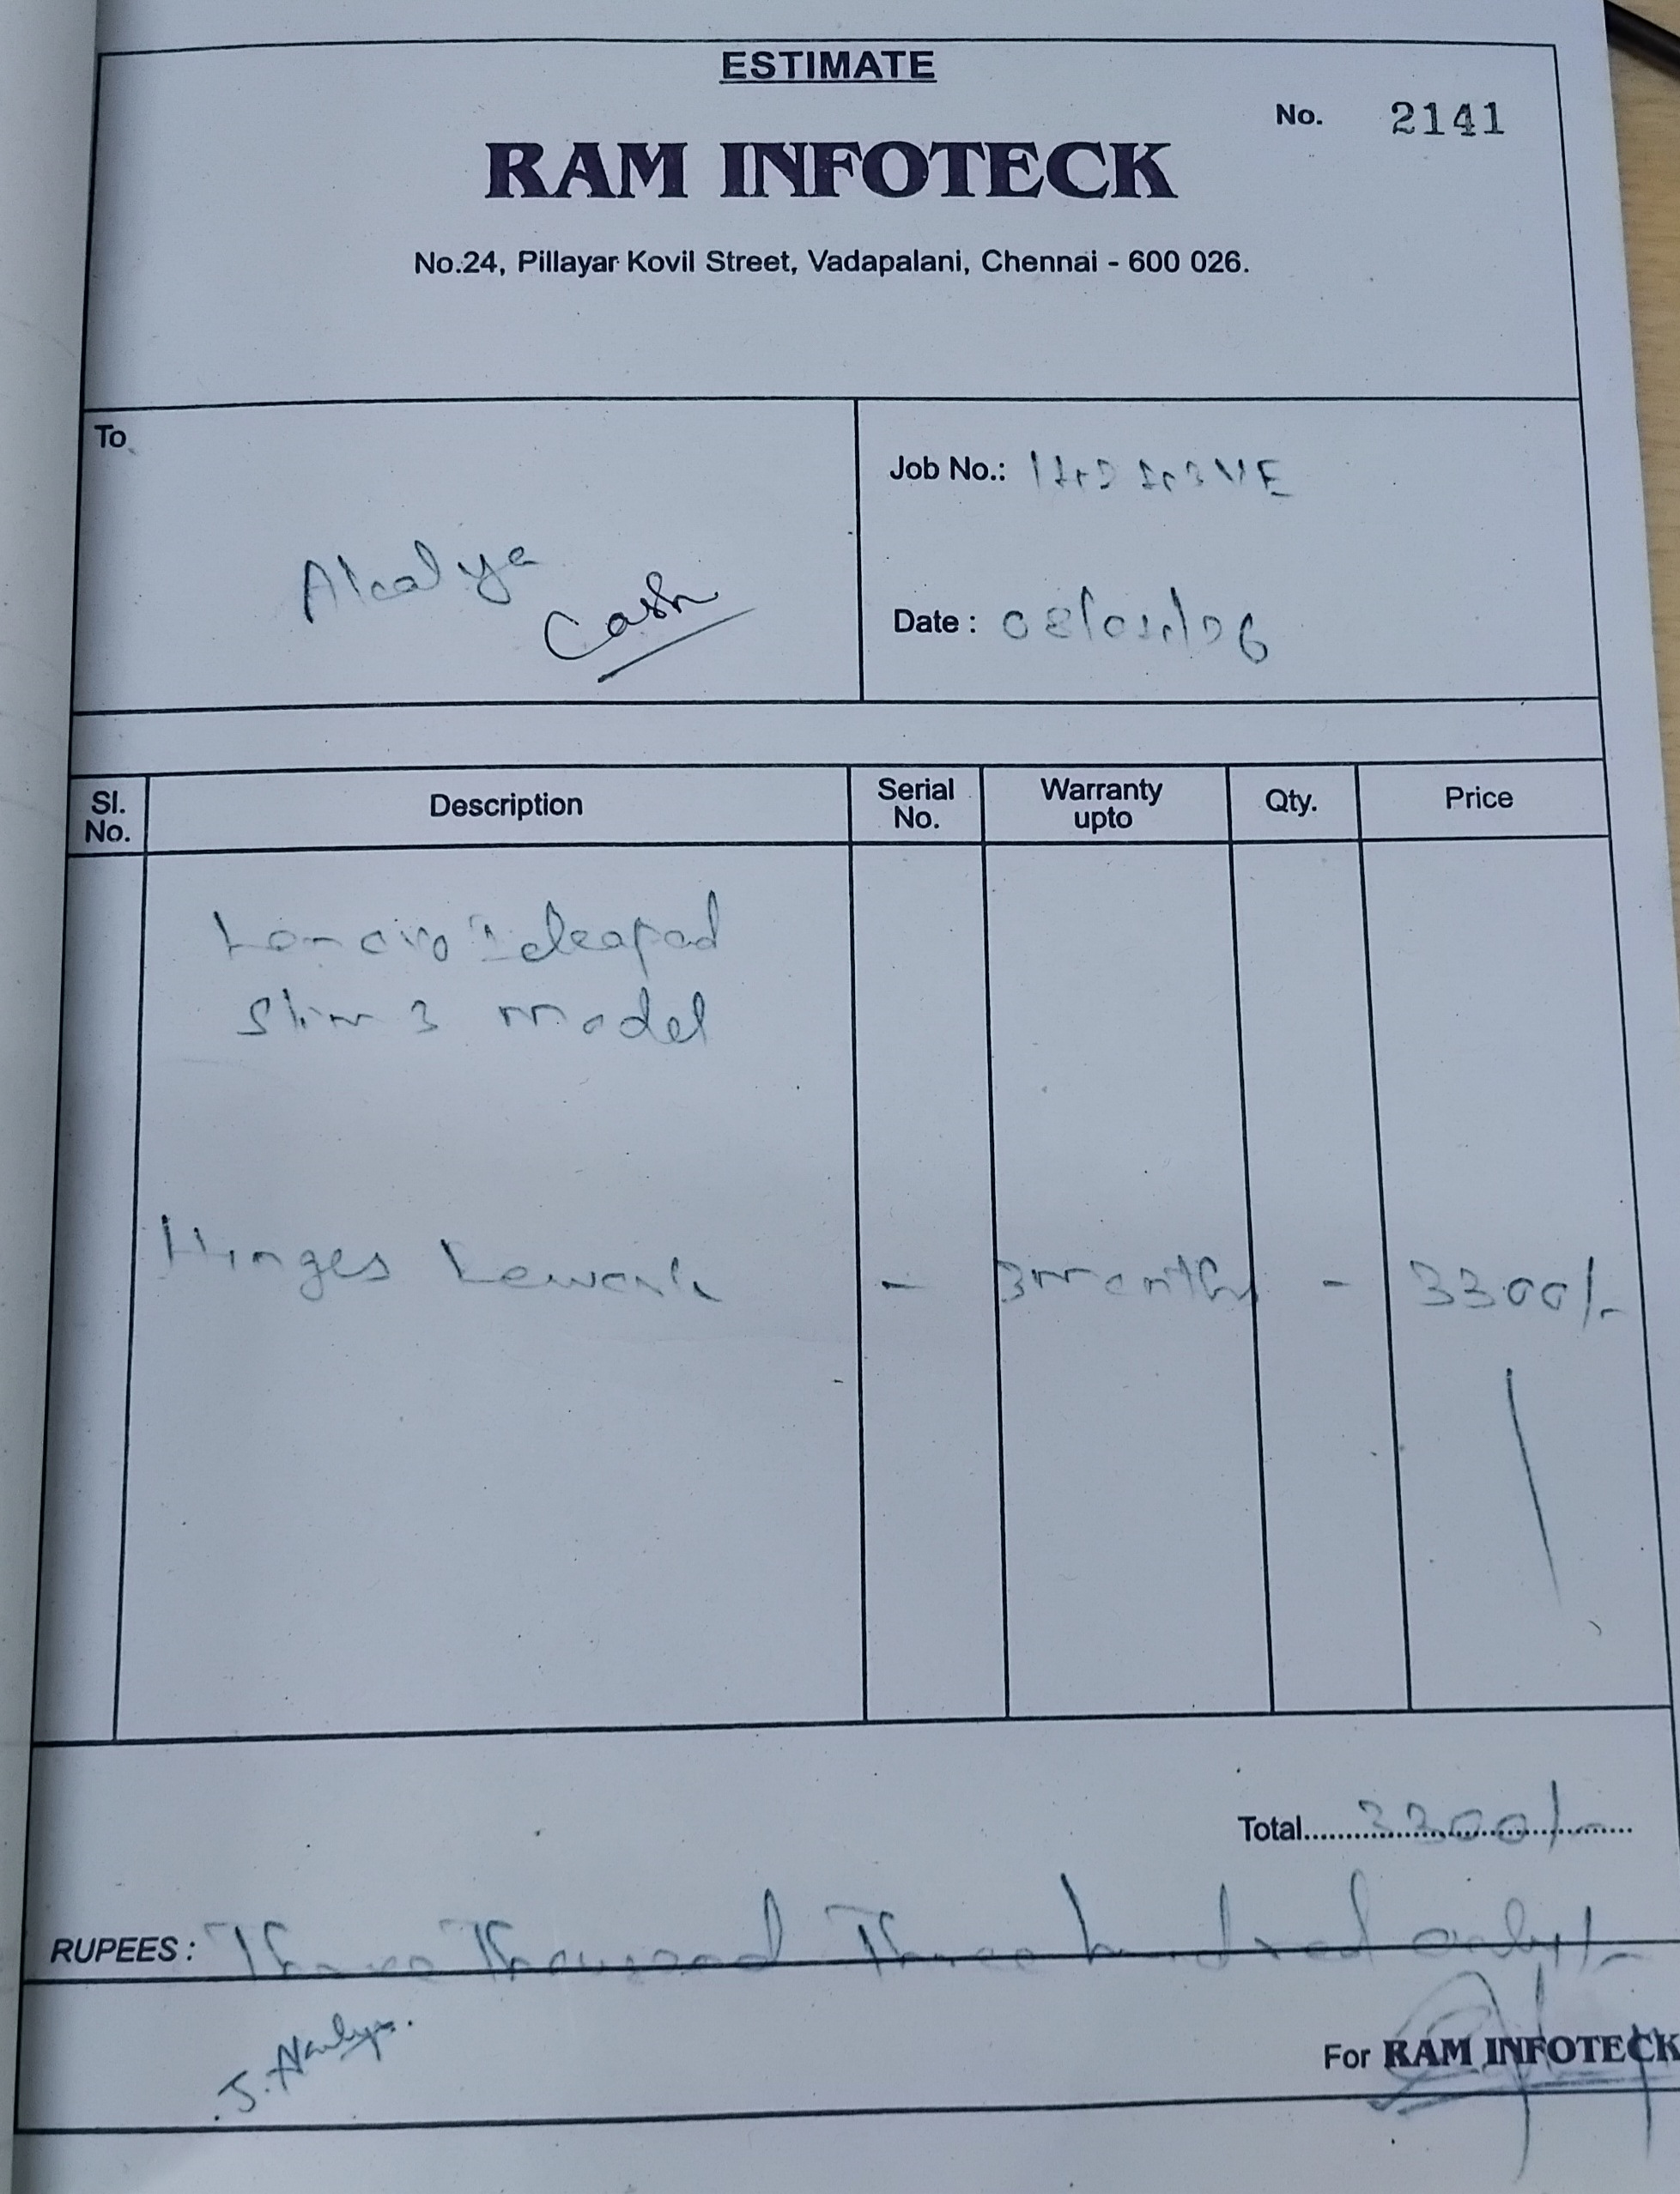 ESTIMATE
No. 2141
RAM INFOTECK
No.24, Pillayar Kovil Street, Vadapalani, Chennai - 600 026.
To
Cash
Job No.:
Date :
Sl. No. Description Serial No. Warranty upto Qty. Price
Ideapad
Slim 3 model
Hinges - 3months - 3300/-
Total 3300/-
RUPEES : Three Thousand Three hundred only/-
For RAM INFOTECK